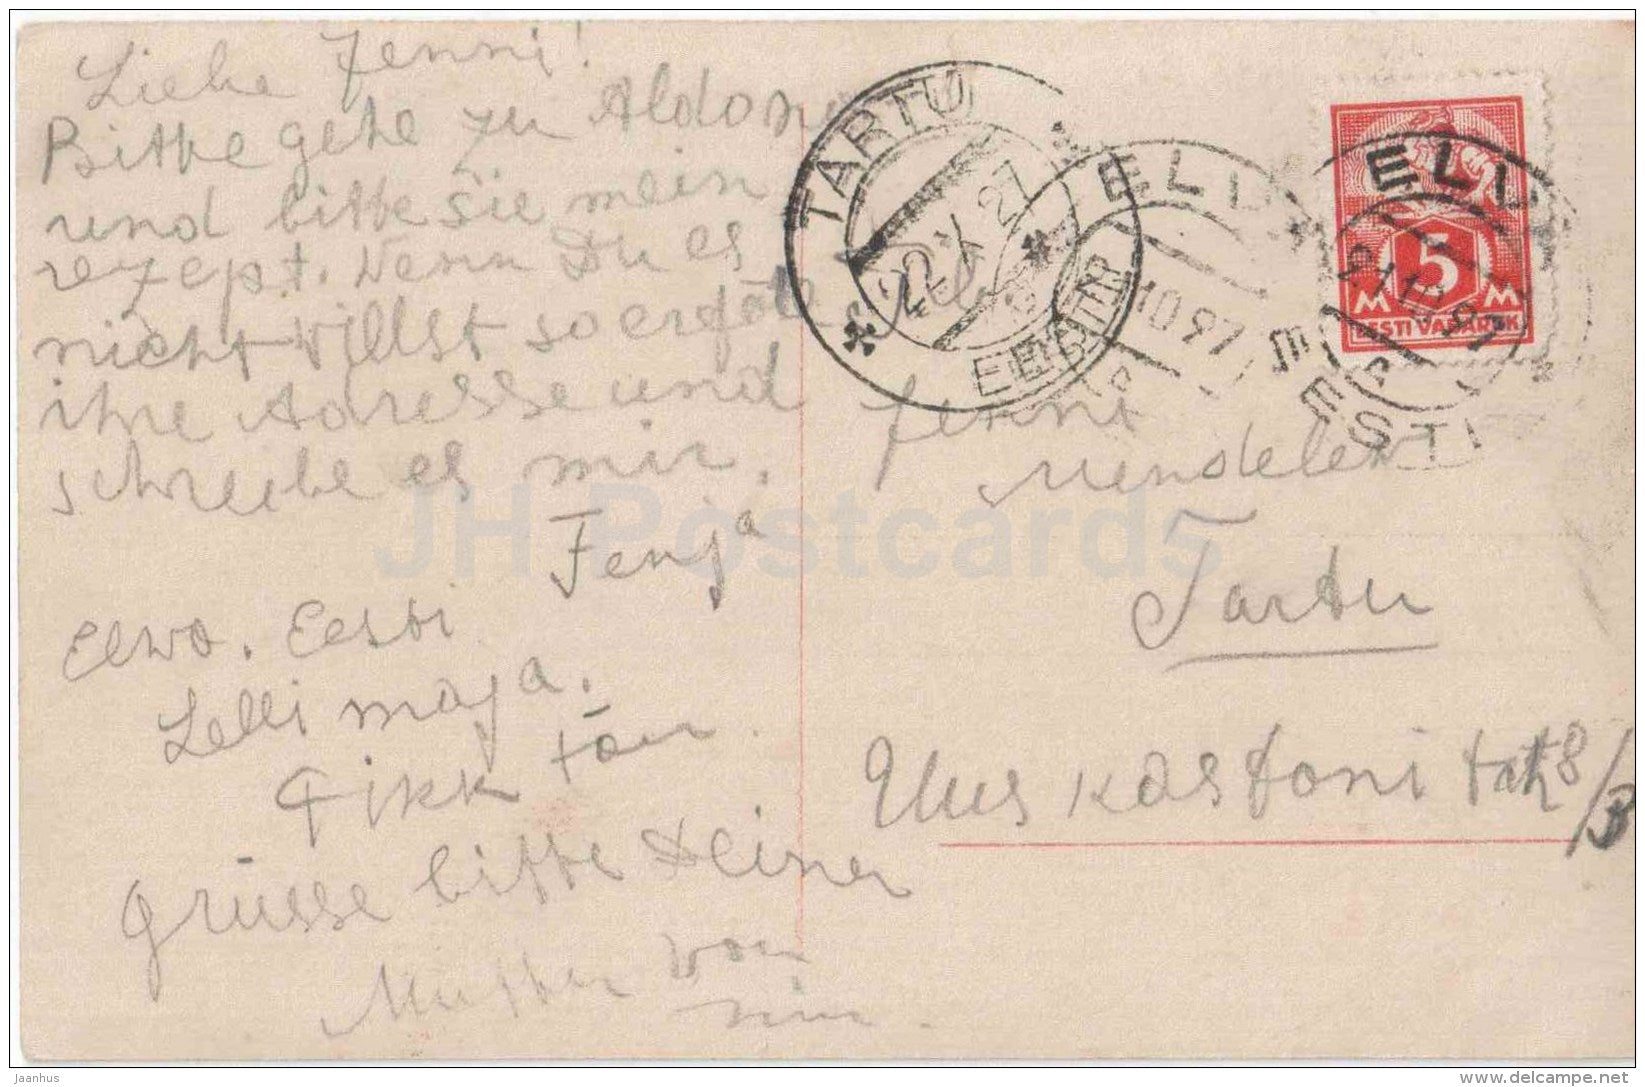 Liebe Jenni!
Bitte gehe zu Aldona
und bitte sie mein
rezept. Wenn Du es
nicht willst so
ihre Adresse und
schreibe es mir.
Fenja
Elwo. Eesti
Lelli maja.
Pikk tän
Grüsse bitte Deiner
Mutter von
mir.
TARTU
22 X 27
EESTI
ELVA
10 27
ELVA
21 10 27
EESTI
5
M M
EESTI VABARIIK
Jenni
Mendelev
Tartu
Uus kastani tän 8/3
JH Postcards
jaanhus
www.delcampe.net